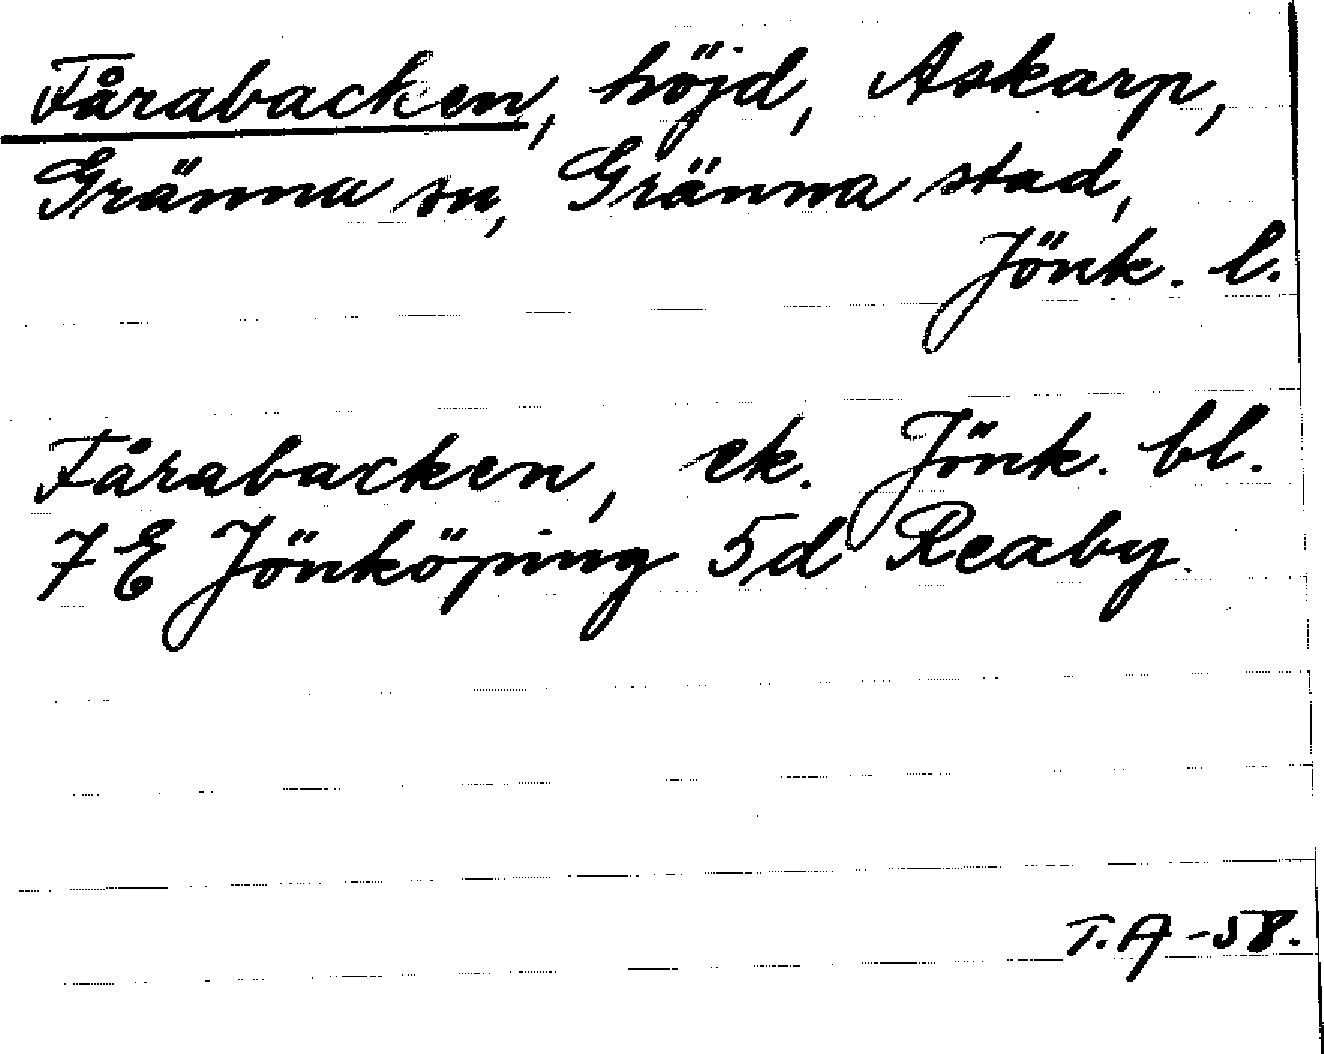 Fårabacken, höjd, Askarp,
Gränna sn, Gränna stad,
Jönk. l.
Fårabacken, ek. Jönk. bl.
7 E Jönköping 5d Reaby.
T.A -58.